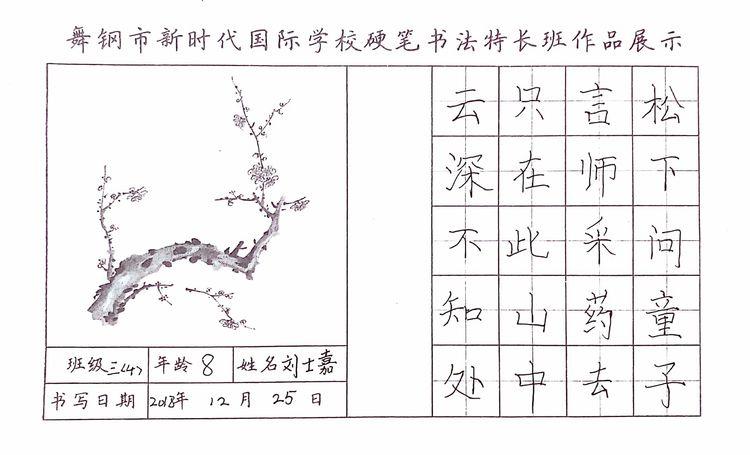 舞钢市新时代国际学校硬笔书法特长班作品展示
松下问童子
言师采药去
只在此山中
云深不知处
班级三(4) 年龄8 姓名刘士嘉
书写日期 2018年 12月 25日